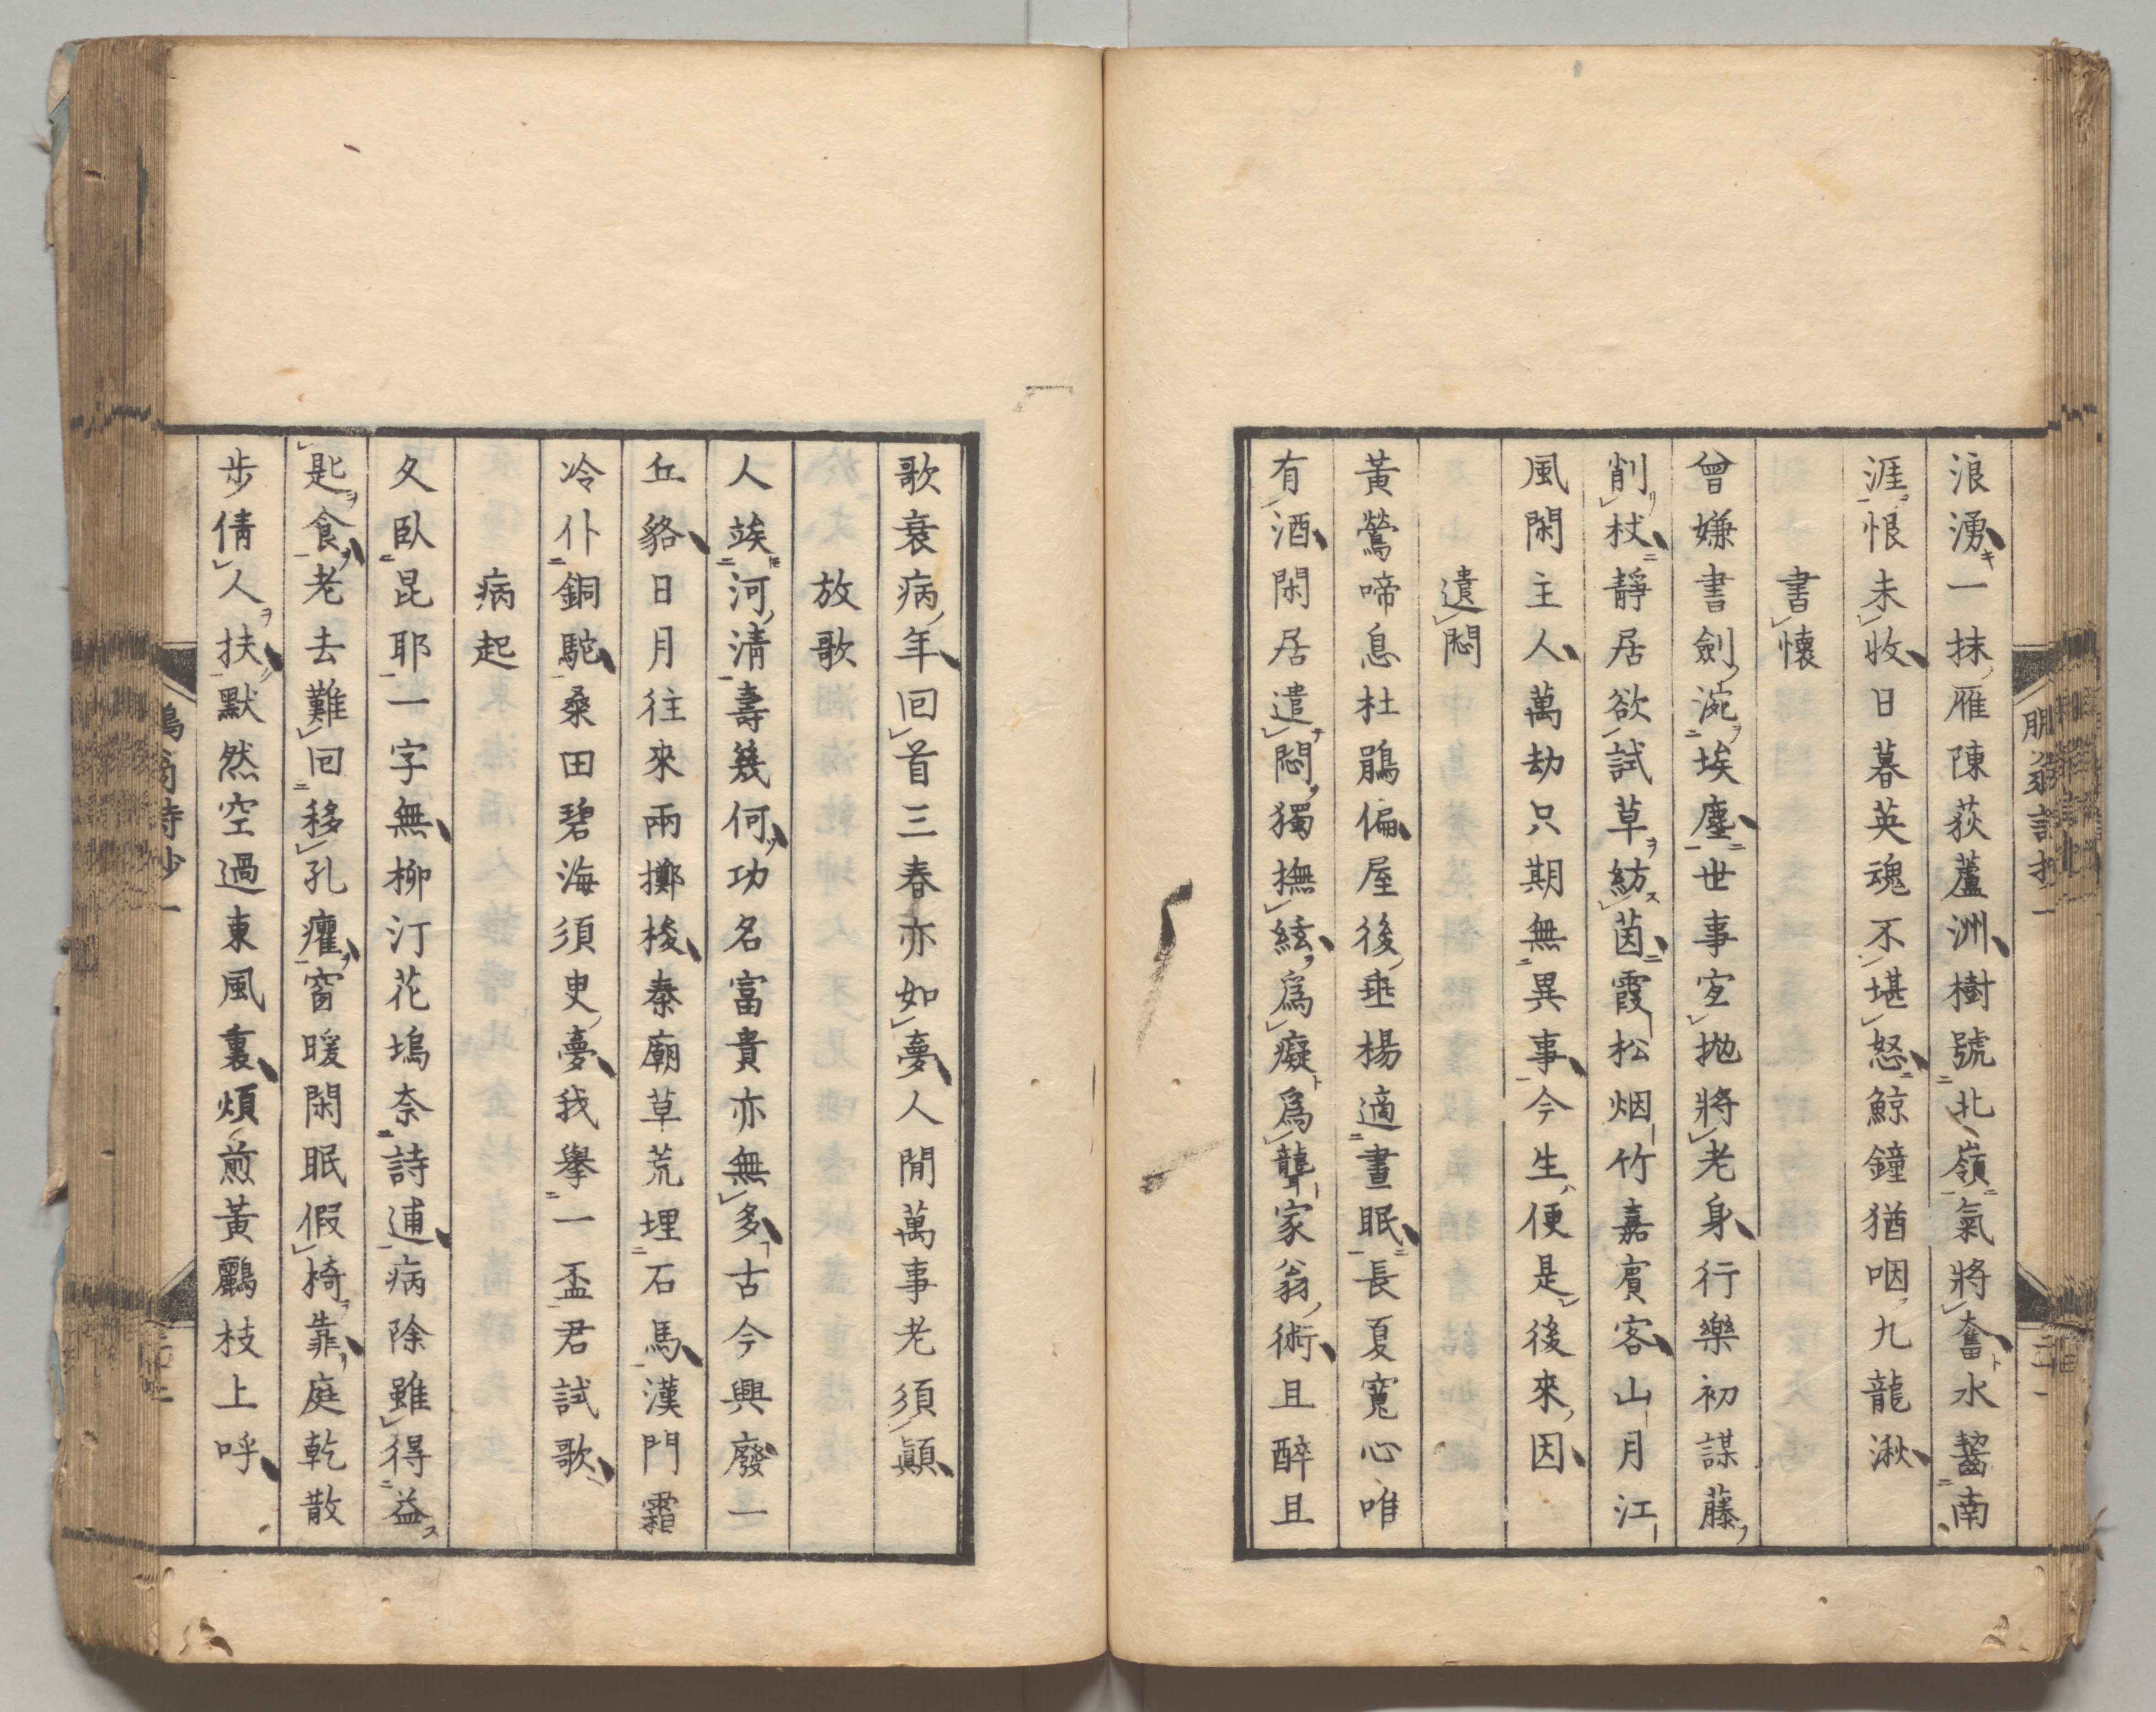 浪湧一抹雁陳荻蘆洲樹號北嶺氣將奮水齧南
涯恨未收日暮英魂不堪怒鯨鐘猶咽九龍湫
書懷
曾嫌書劍涴埃塵世事寧拋將老身行樂初謀藤
削杖靜居欲試草紡茵霞松烟竹嘉賓客山月江
風閑主人萬劫只期無異事今生便是後來因
遣悶
黃鶯啼息杜鵑偏屋後垂楊適晝眠長夏寬心唯
有酒閑居遣悶獨撫絃爲癡爲聾家翁術且醉且
歌衰病年回首三春亦如夢人間萬事老須顚
放歌
人竢河清壽幾何功名富貴亦無多古今興廢一
丘貉日月往來兩擲梭秦廟草荒埋石馬漢門霜
冷仆銅駝桑田碧海須臾夢我擧一盃君試歌
病起
久臥昆耶一字無柳汀花塢奈詩逋病除雖得益
匙食老去難回移孔癯窗暖閑眠假椅靠庭乾散
步倩人扶默然空過東風裏煩煎黃鸝枝上呼